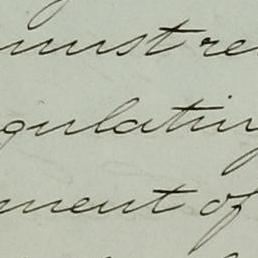 must re
gulating
ment of